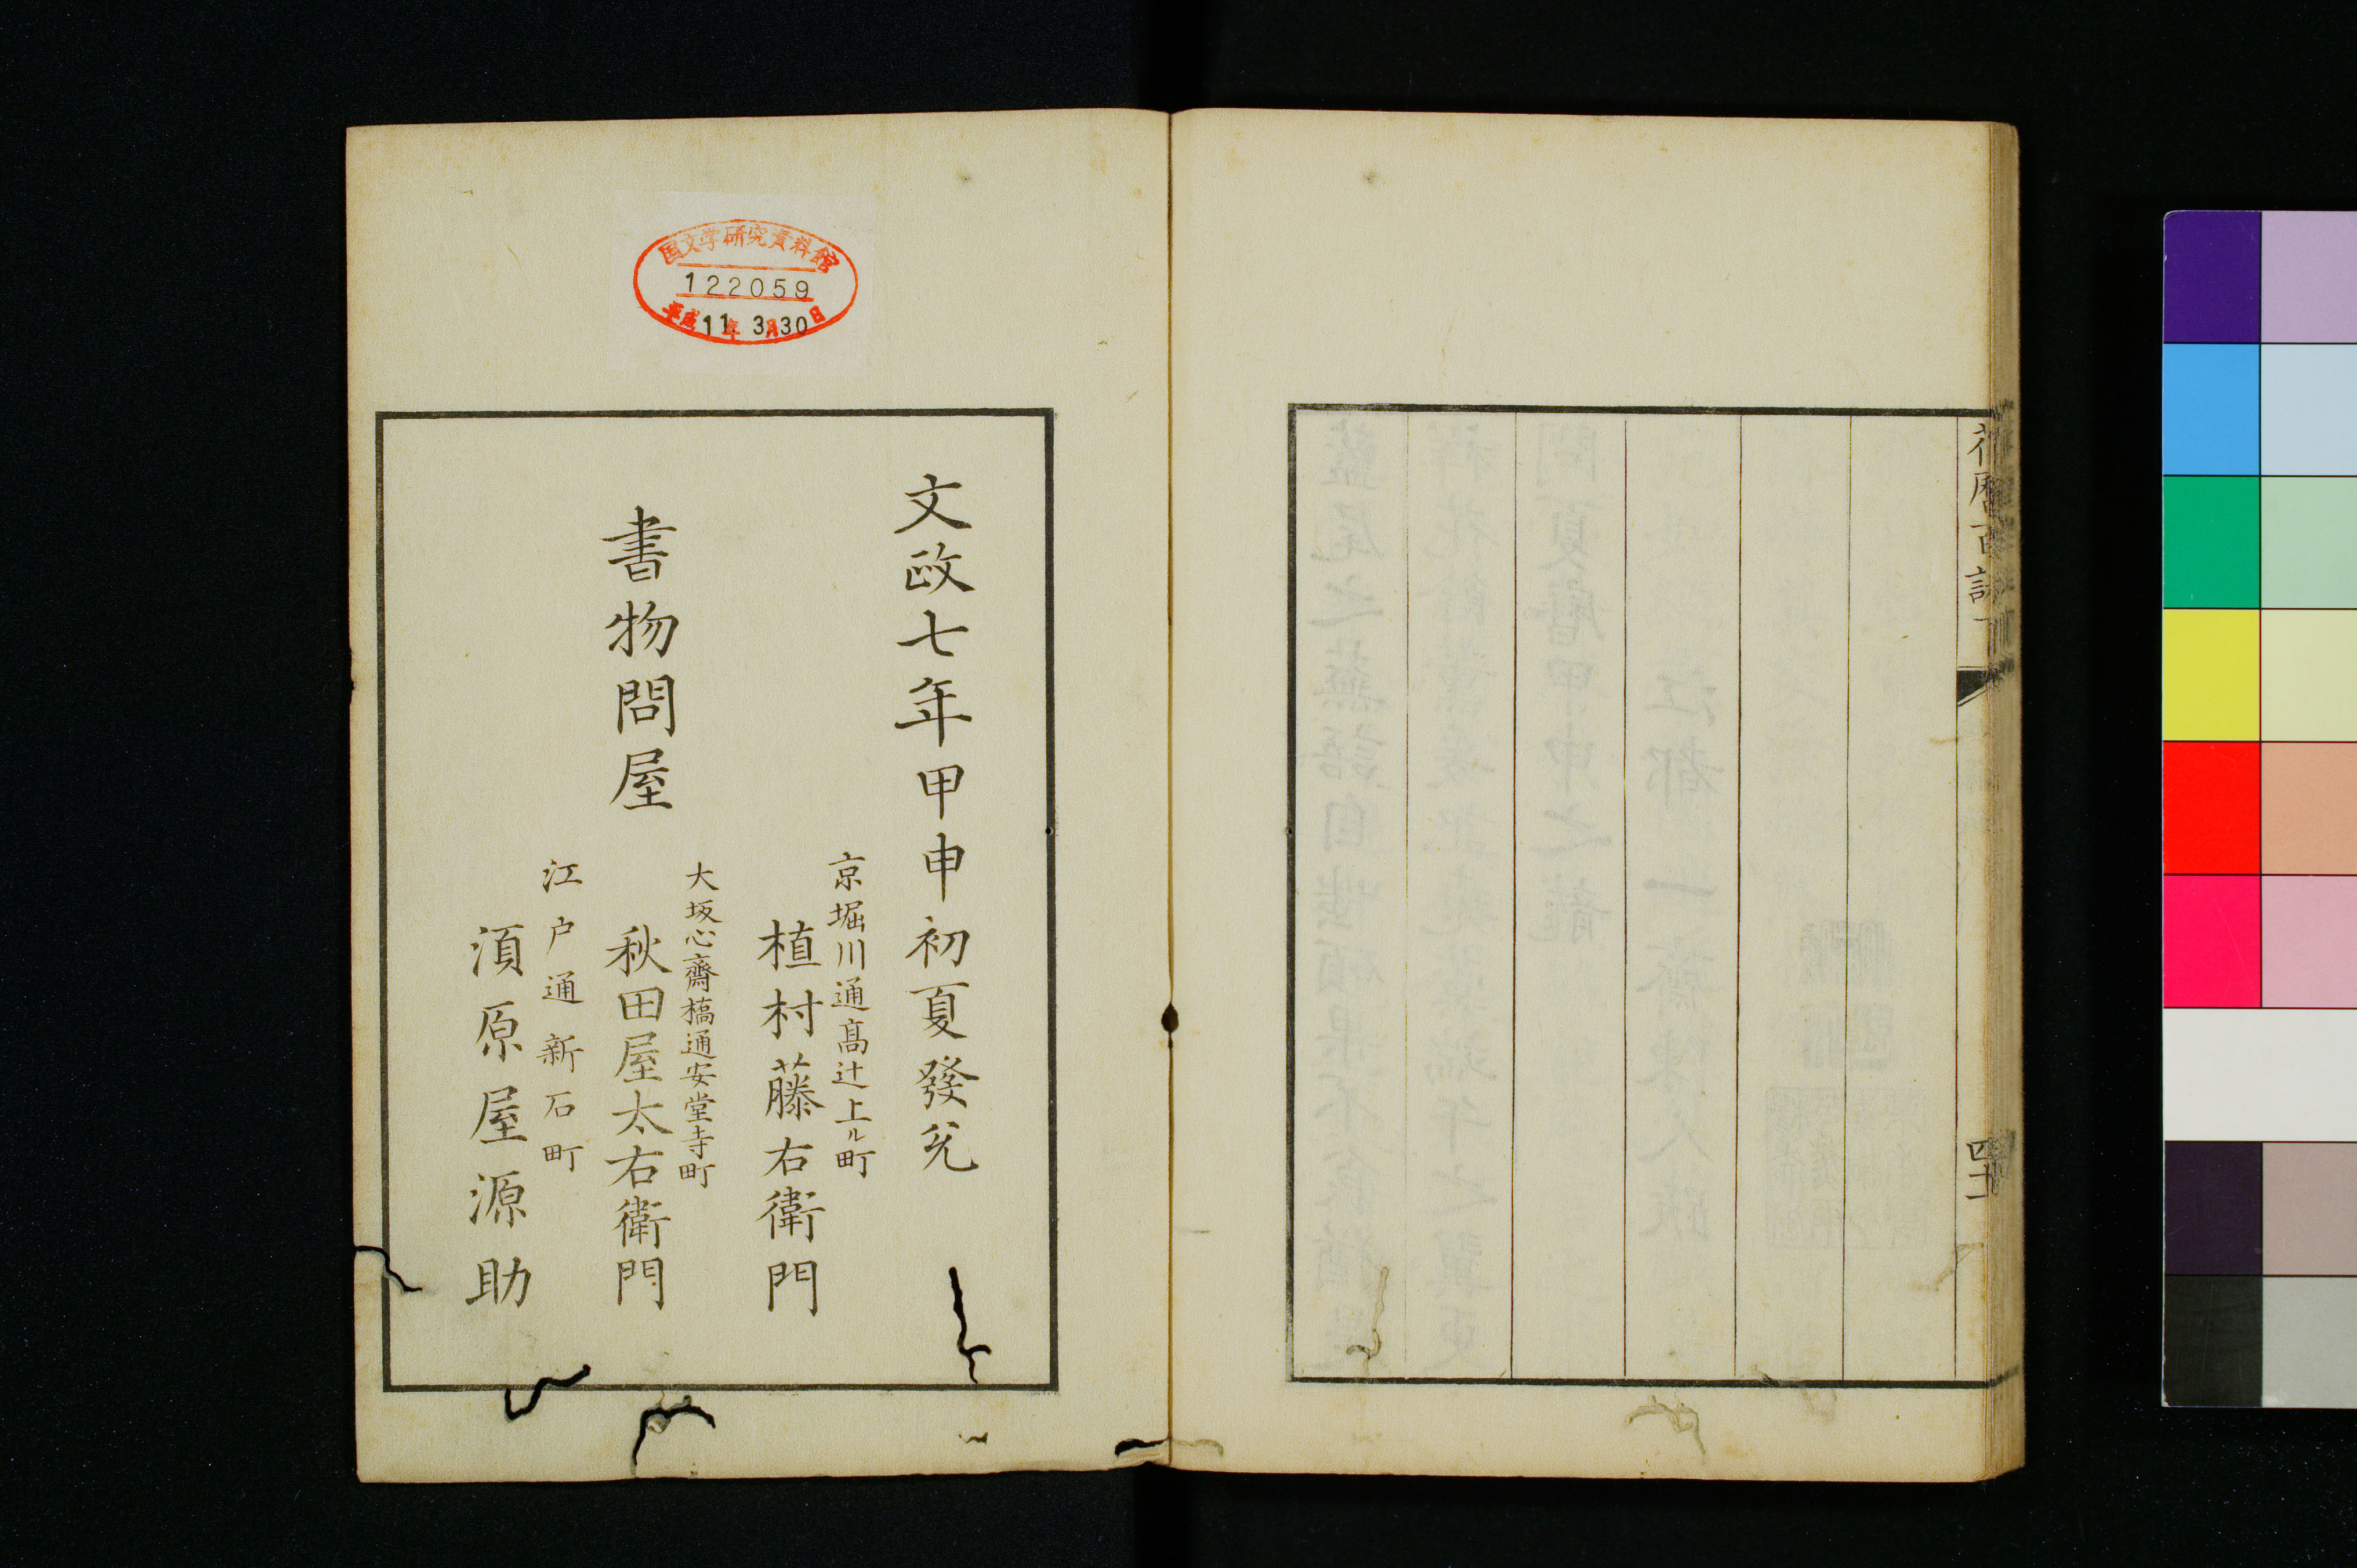 花暦百詠下
四十一
国文学研究資料館
122059
平成11年3月30日
文政七年甲申初夏發兌
京堀川通髙辻上ル町
植村藤右衛門
大坂心齋橋通安堂寺町
書物問屋
秋田屋太右衛門
江戸通新石町
須原屋源助